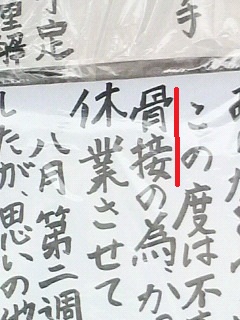 手
定
理解
この度は不
骨接の為、か
休業させて
八月第二週
したが、思いの他